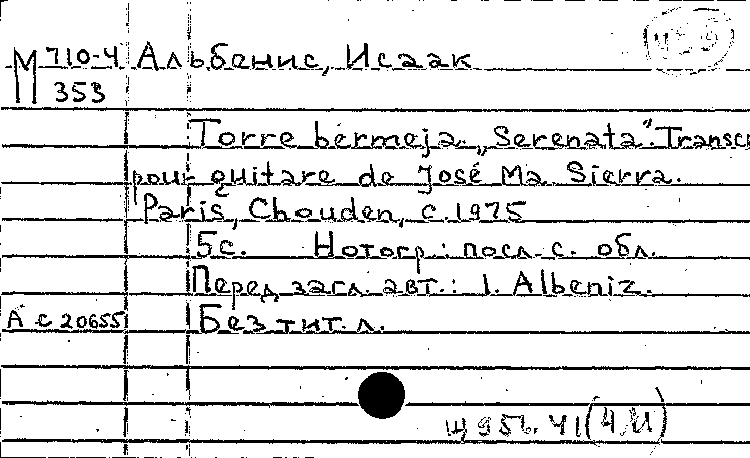 М 710-4 Альбенис, Исаак
353
Torre bermeja. „Serenata". Transcr
pour guitare de José Ma Sierra.
Paris, Chouden, c. 1975
5с. Нотогр: посл. с. обл.
Перед загл. авт.: I. Albeniz.
А с 20655 Без тит. л.
Щ 956. 41 (4И)